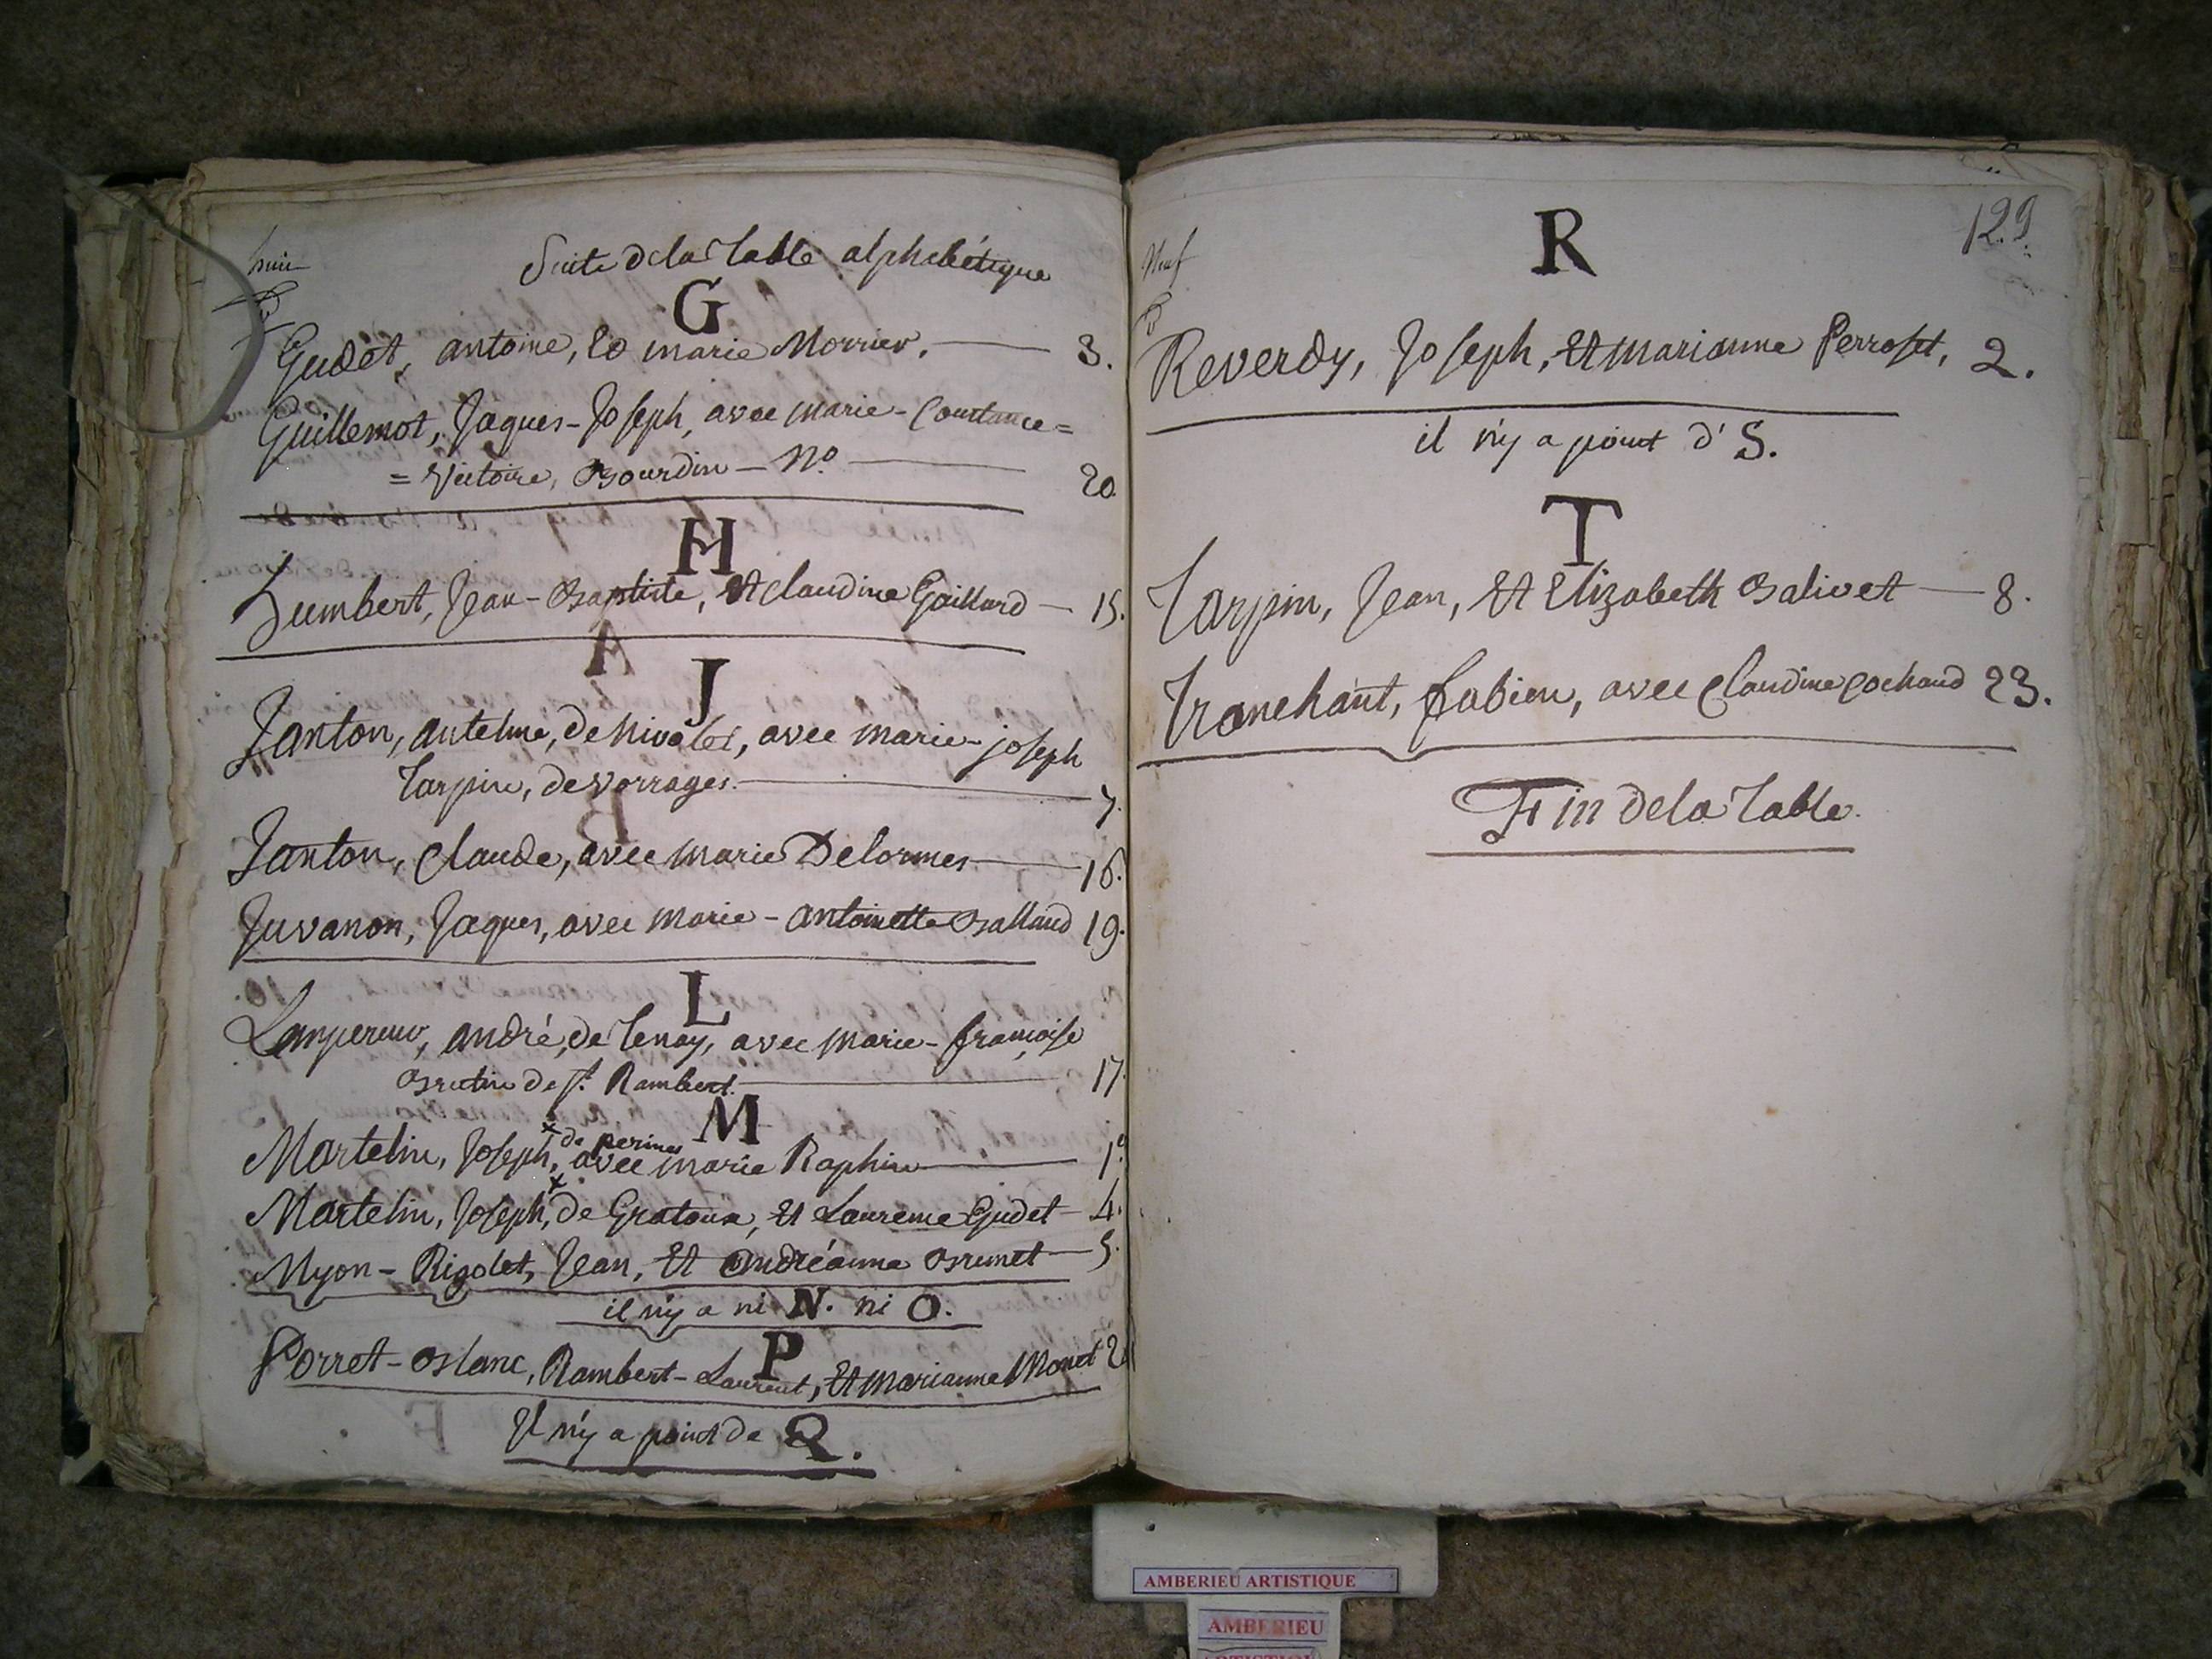 huit
Suite dela Table alphabétique
G
Gudet, antoine, Et marie Morrier. 3.
Guillemot, Jaques-Joseph, avec marie-Constance=
=Victoire, Bourdin - N.o 20
H
Humbert, Jean-Baptiste, Et claudine Gaillard - 15.
J
Janton, antelme, de Nivolet, avec marie-joseph
Tarpin, de vorrages 7.
Janton, claude, avec marie Delormes 16.
Juvanon, Jaques, avec marie-antoinette Balland 19.
L
Lempereur, andré, de Tenay, avec marie-françoise
Brutin de st. Rambert. 17.
M
de perines
Martelin, Joseph, avec marie Raphin 1.er
Martelin, Joseph, de Gratoux, Et Laurence Gudet 4.
Myon-Rigolet, Jean, Et Andréanne Brunet 5.
il n'y a ni N. ni O.
P
Porret-Blanc, Rambert-Laurent, Et marianne Monet
Il n'y a point de Q.
129.
Neuf
R
Reverdy, Joseph, Et marianne Perroset, 2.
il n'y a point d'S.
T
Tarpin, Jean, Et Elizabeth Balivet - 8.
Tranchant, fabien, avec Claudine Cochaud 23.
Fin dela Table.
AMBERIEU ARTISTIQUE
AMBERIEU
ARTISTIQUE